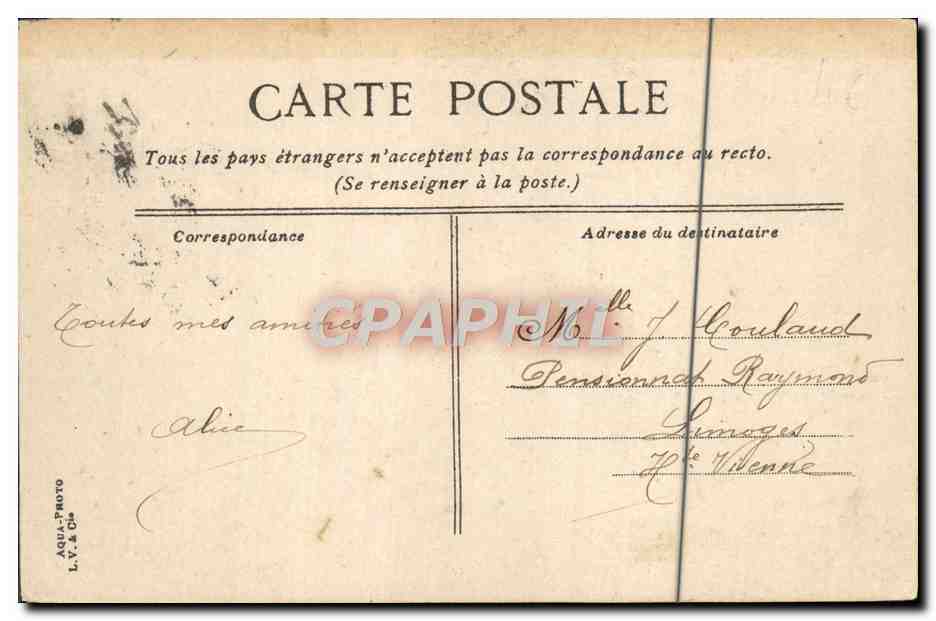 CARTE POSTALE
Tous les pays étrangers n'acceptent pas la correspondance au recto.
(Se renseigner à la poste.)
Correspondance
Toutes mes amitiés
Alice
Adresse du destinataire
Mlle. J. Coulaud
Pensionnat Raymond
Limoges
Hte Vienne
AQUA-PHOTO
L. V. & Cie
CPAPHIL